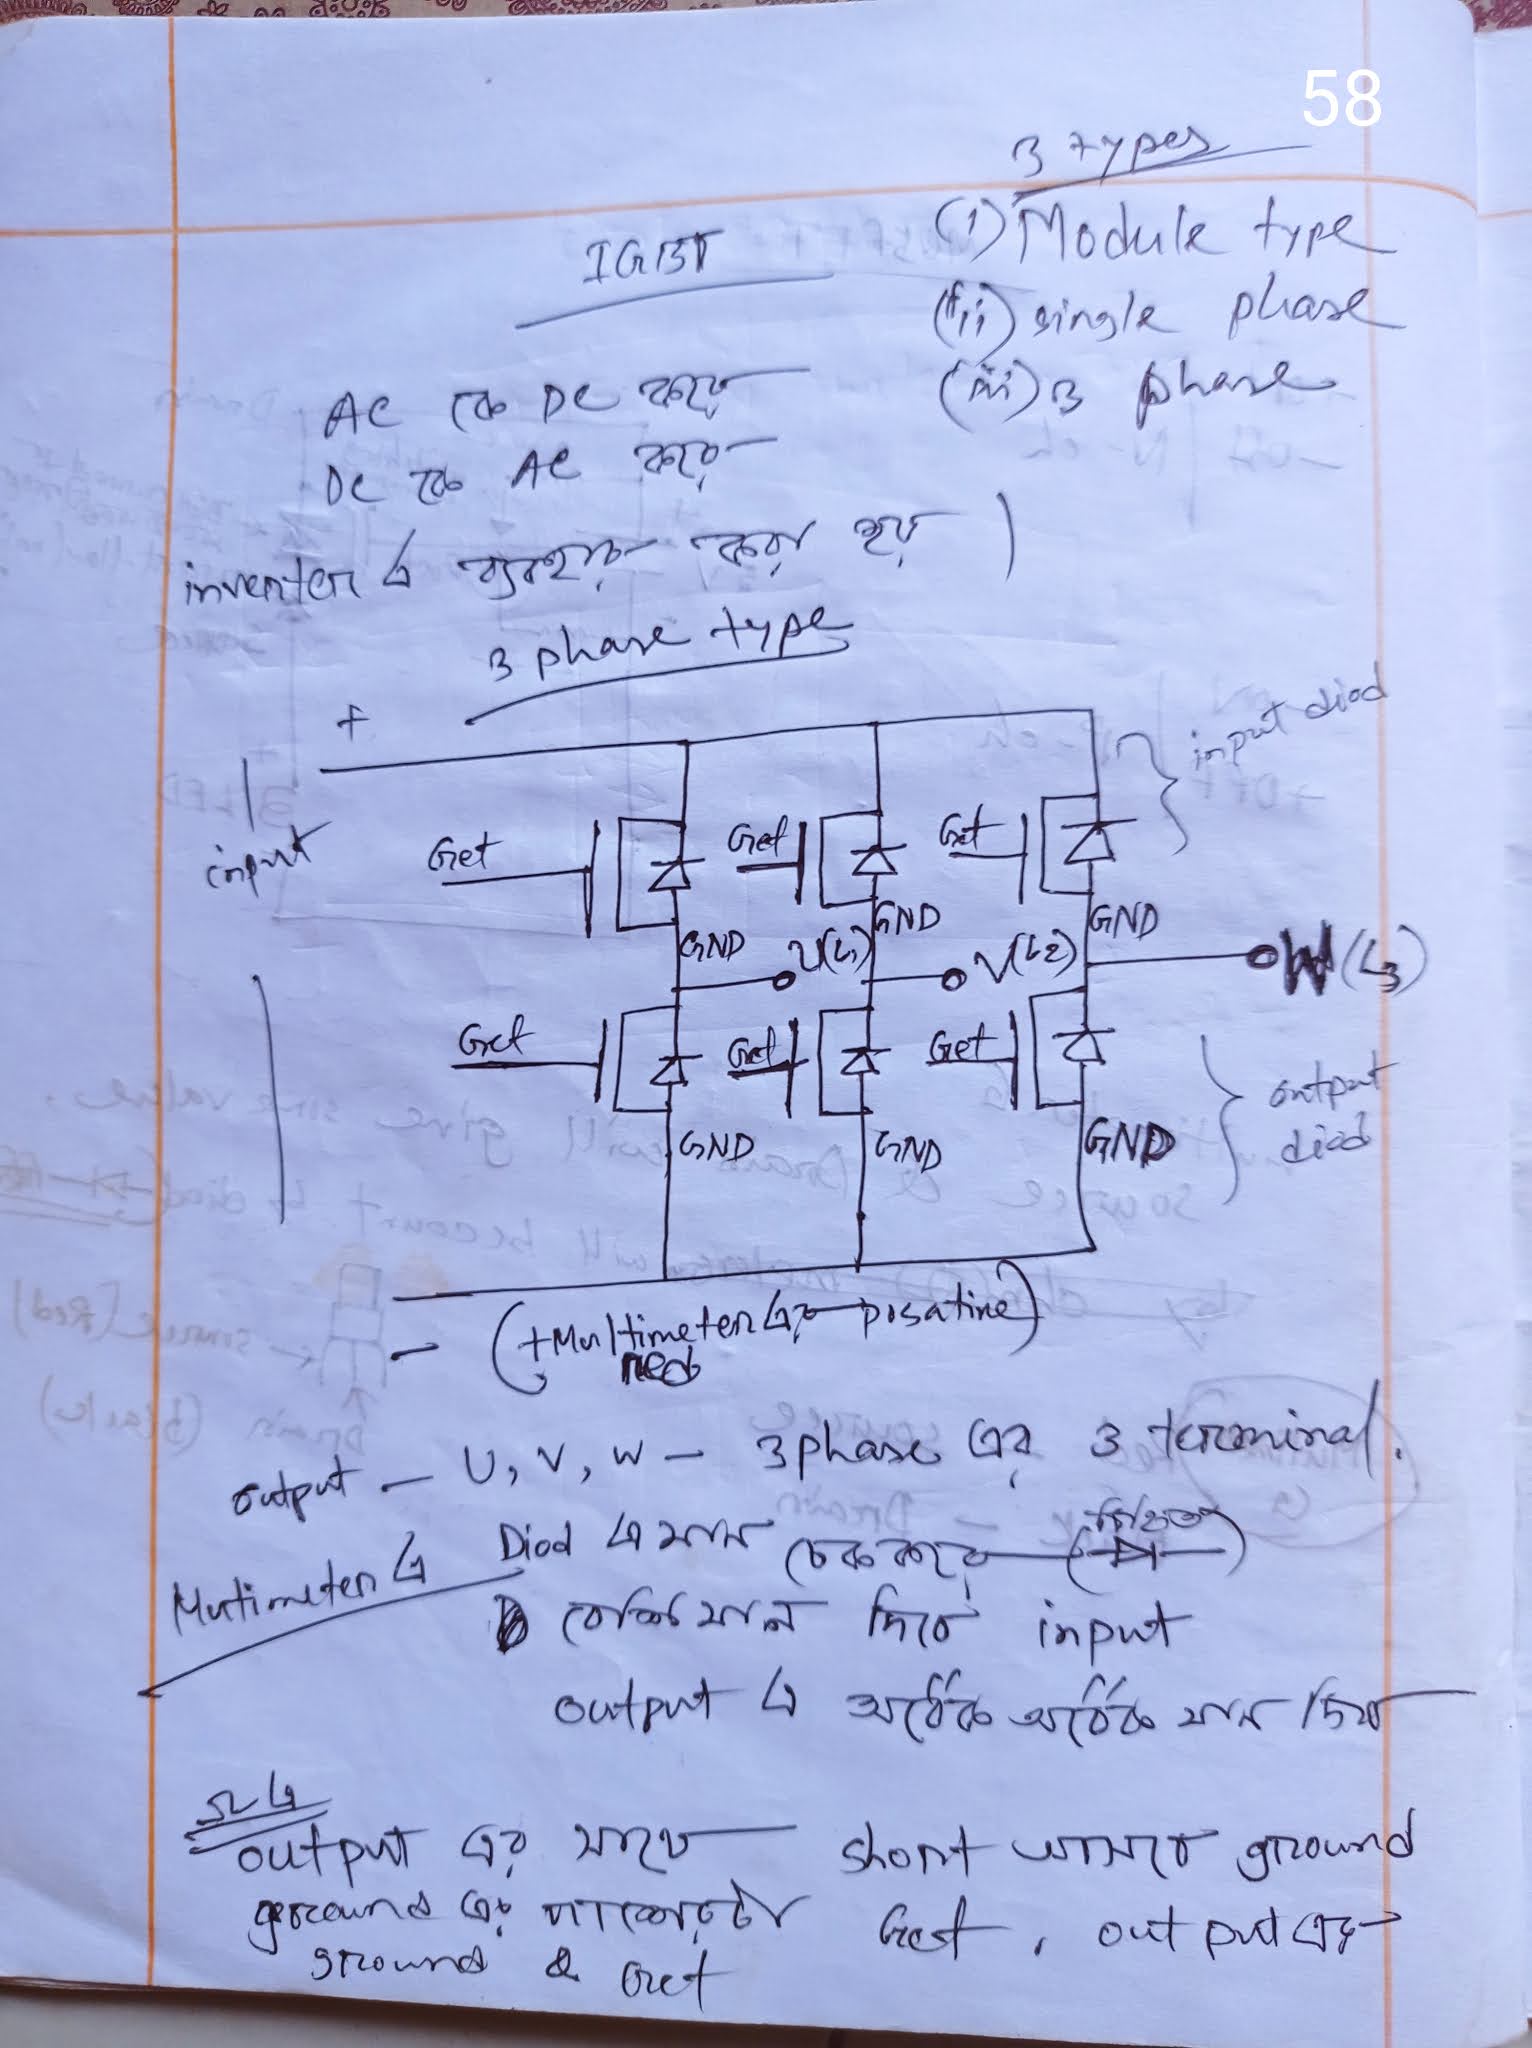 58
3 types
IGBT
(i) Module type
(ii) single phase
(iii) 3 phase
AC কে DC করে
DC কে AC করে
inverter এ ব্যবহার করা হয়
3 phase type
+
input diod
input
Get
Get
Get
GND
GND
GND
U(L1)
V(L2)
W(L3)
Get
Get
Get
output
diod
GND
GND
GND
(+Multimeter এর posative)
Red
output - U, V, W - 3 phase এর 3 terminal.
Multimeter এ
Diod এ মান চেক করে
বেশি মান দিবে input
output এ অর্ধেক অর্ধেক মান দিবে
Ω এ
output এর সাথে short আসবে ground
ground এর পাশেরটা Get, output এর
ground & Get